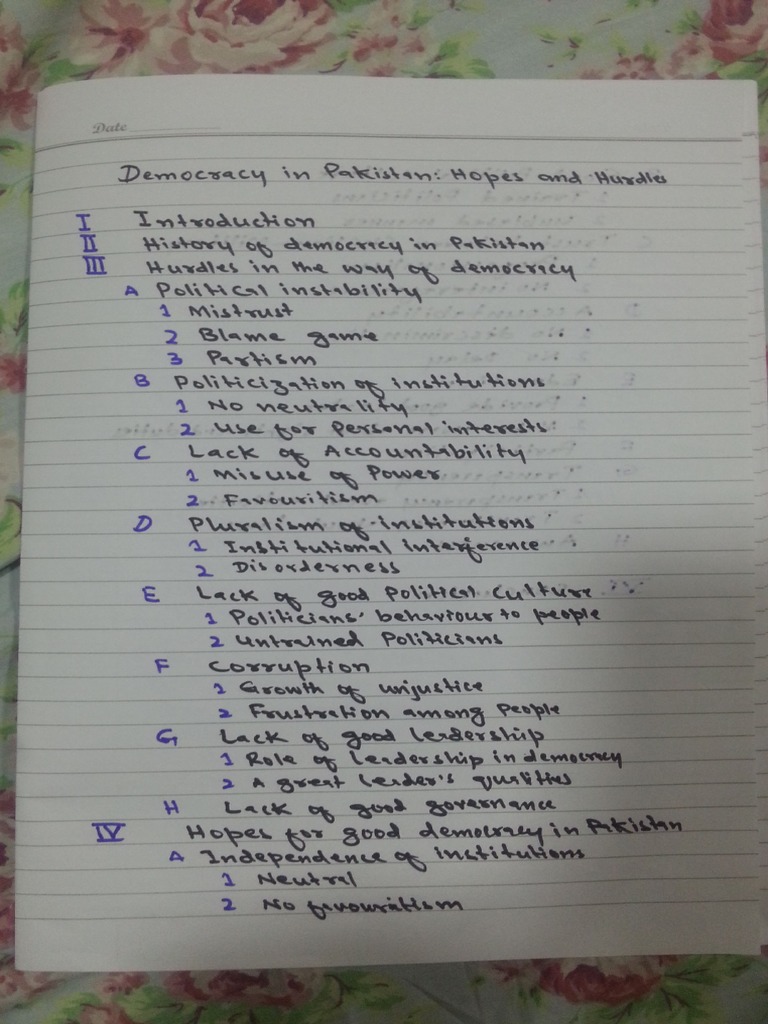 Date
Democracy in Pakistan: Hopes and Hurdles
I Introduction
II History of democracy in Pakistan
III Hurdles in the way of democracy
A Political instability
1 Mistrust
2 Blame game
3 Partism
B Politicization of institutions
1 No neutrality
2 Use for Personal interests
C Lack of Accountability
1 Misuse of Power
2 Favouritism
D Pluralism of institutions
1 Institutional interference
2 Disorderness
E Lack of good Political Culture
1 Politicians' behaviour to people
2 Untrained Politicians
F Corruption
1 Growth of unjustice
2 Frustration among People
G Lack of good leadership
1 Role of leadership in democracy
2 A great leader's qualities
H Lack of good governance
IV Hopes for good democracy in Pakistan
A Independence of institutions
1 Neutral
2 No favouratism